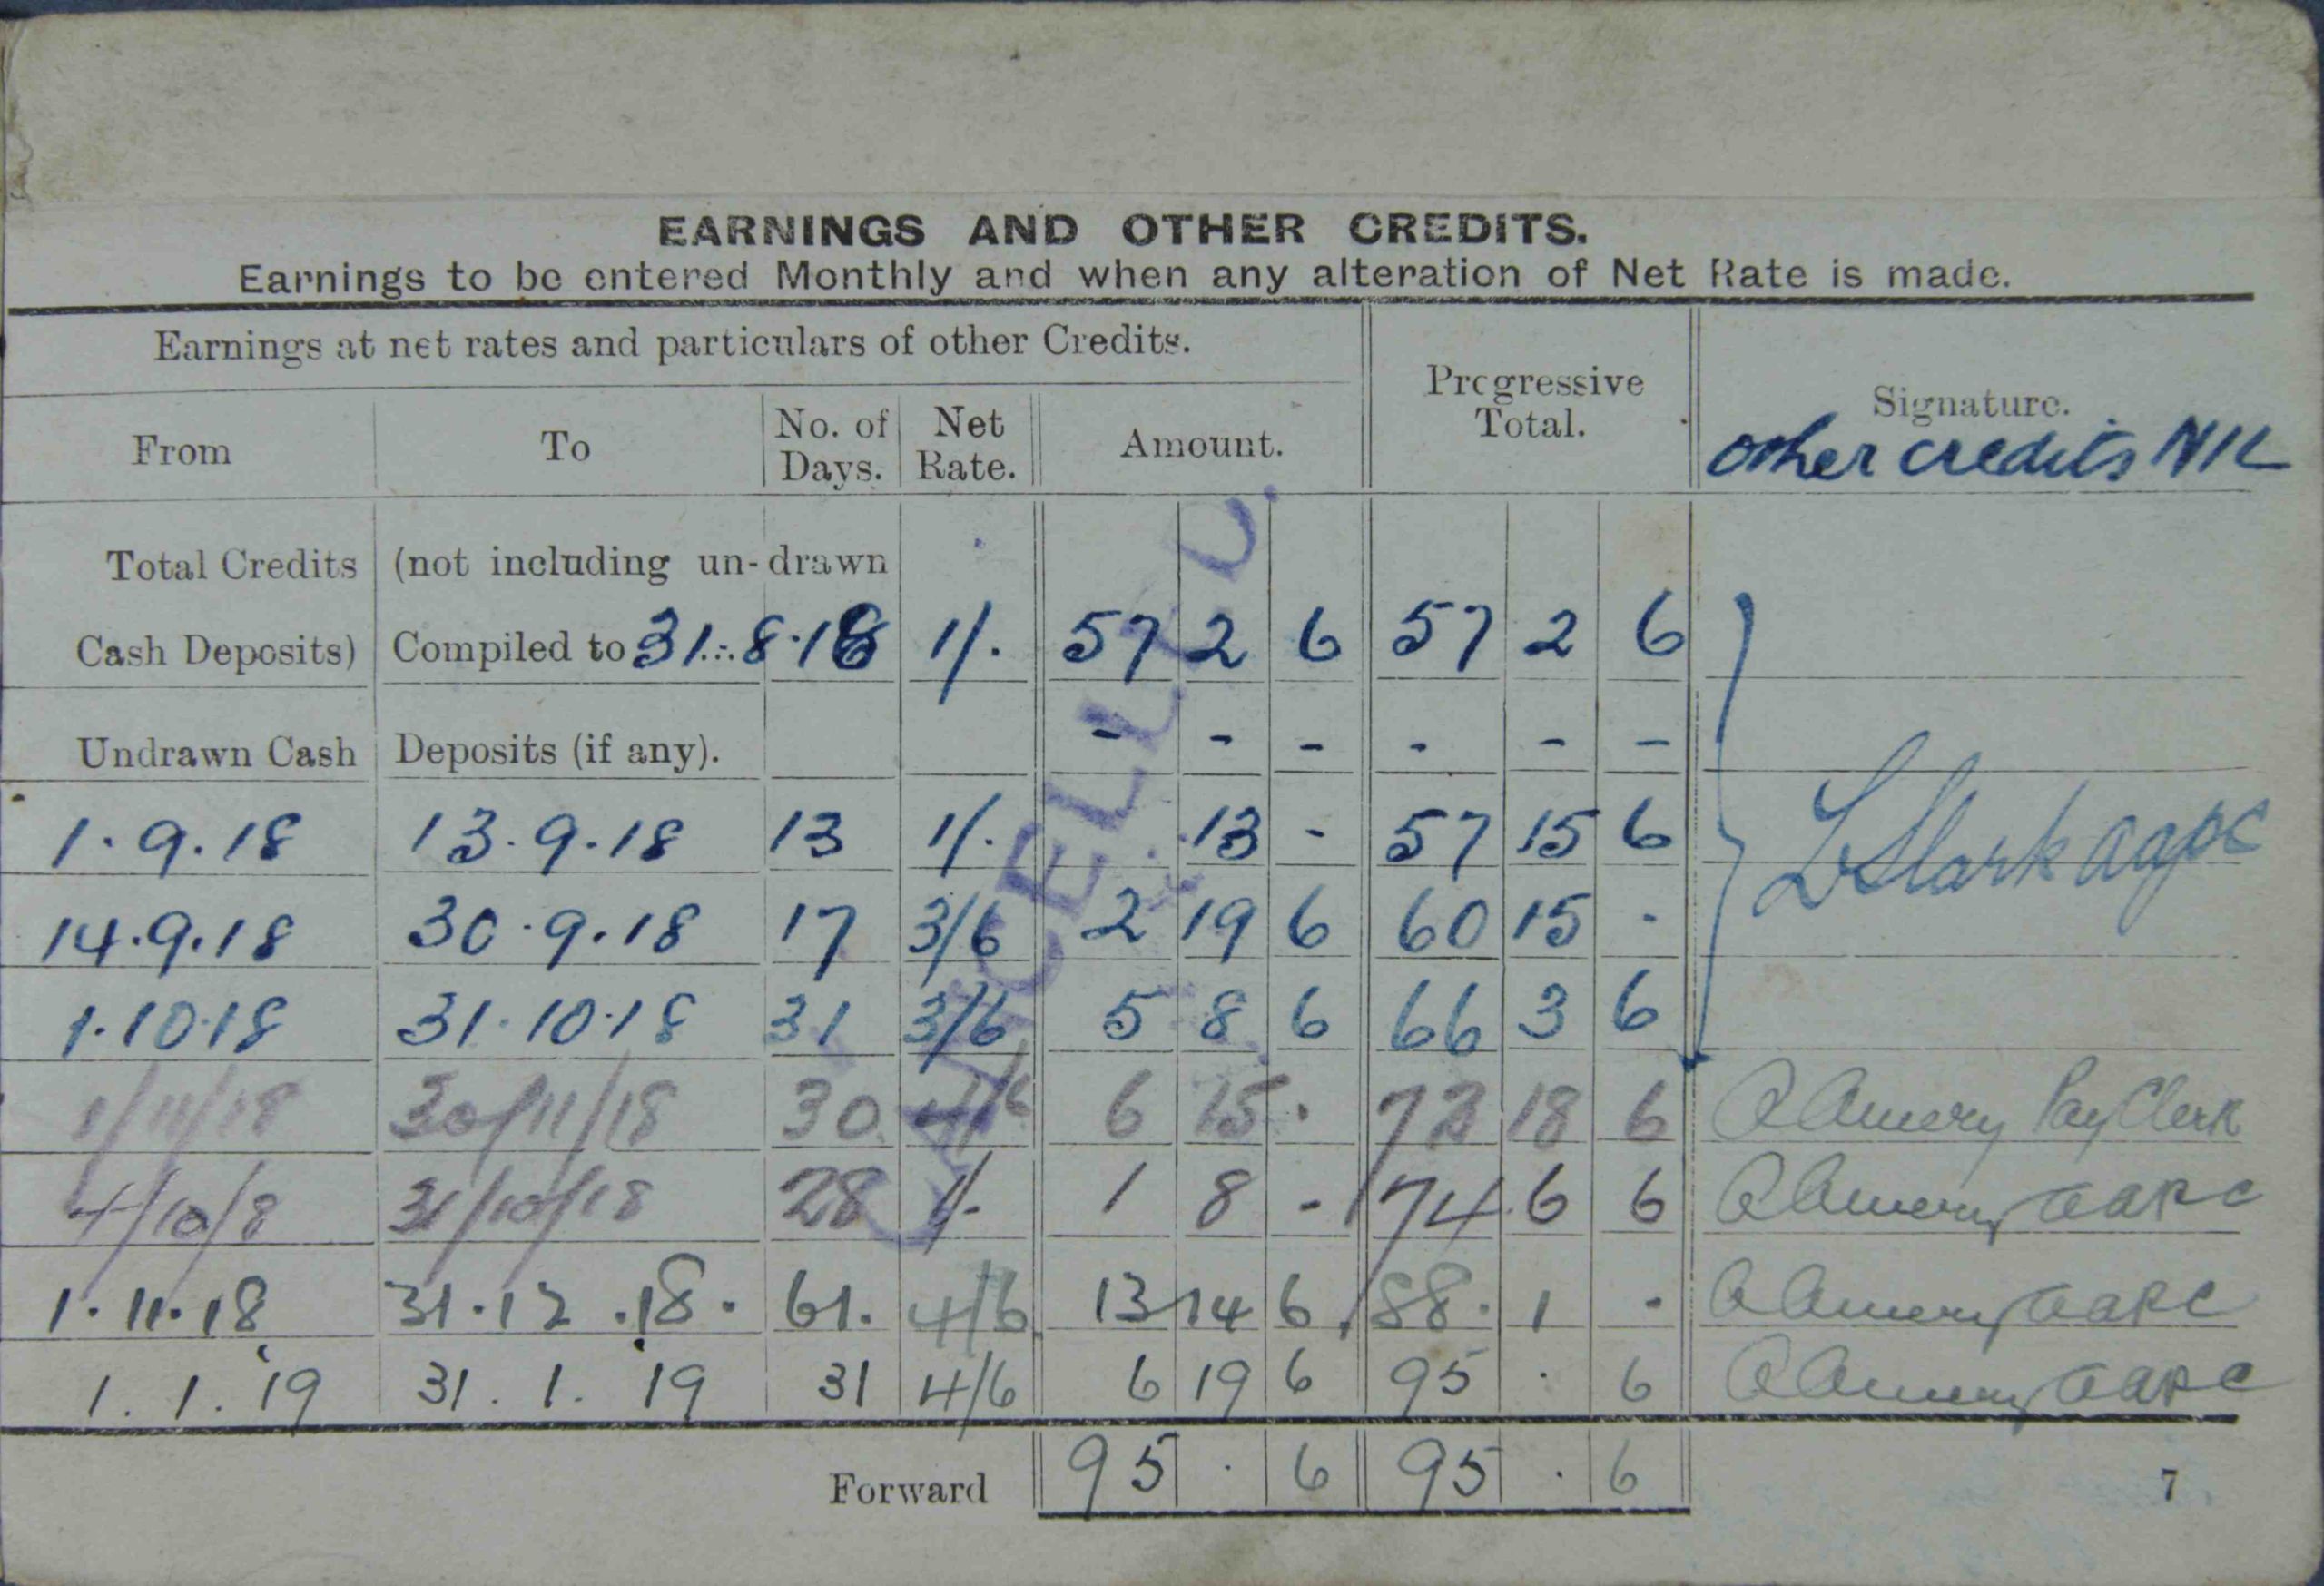 EARNINGS AND OTHER CREDITS.
Earnings to be entered Monthly and when any alteration of Net Rate is made.
Earnings at net rates and particulars of other Credits. Progressive Total. Signature.
From To No. of Days. Net Rate. Amount. other credits NIL
Total Credits (not including un-drawn
Cash Deposits) Compiled to 31.8.18 1/. 57 2 6 57 2 6
Undrawn Cash Deposits (if any). - - - - - -
1.9.18 13.9.18 13 1/. 13 - 57 15 6
14.9.18 30.9.18 17 3/6 2 19 6 60 15 .
1.10.18 31.10.18 31 3/6 5 8 6 66 3 6
1/11/18 30/11/18 30 4/6 6 15 . 72 18 6 Pay Clerk
4/10/8 31/10/18 28 1/- 1 8 - 74 6 6 AAPC
1.11.18 31.12.18. 61. 4/6 13 14 6 88. 1 . AAPC
1.1.19 31.1.19 31 4/6 6 19 6 95 . 6 AAPC
Forward 95 . 6 95 . 6
7
CANCELLED.